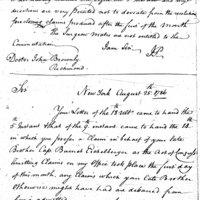 mission are very pointed not to deviate from the resolution
foreclosing claims produced after the first of the Month
The Surgeons Mates are not entitled to the
Commutation
I am Sir
Doctor John Brownly
Richmond
Sir
New York August 25th 1786
Your Letter of the 18 Ulto came to hand the
5 Instant & that of the 9 instant came to hand the 18th
in which you prefer a Claim in behalf of your late
Brother Cap. Barnet Eichelberger as the Act of Congress
limitting Claims in my office took place the first day
of this month, any Claims which your late Brother
otherwise might have had are debarred from